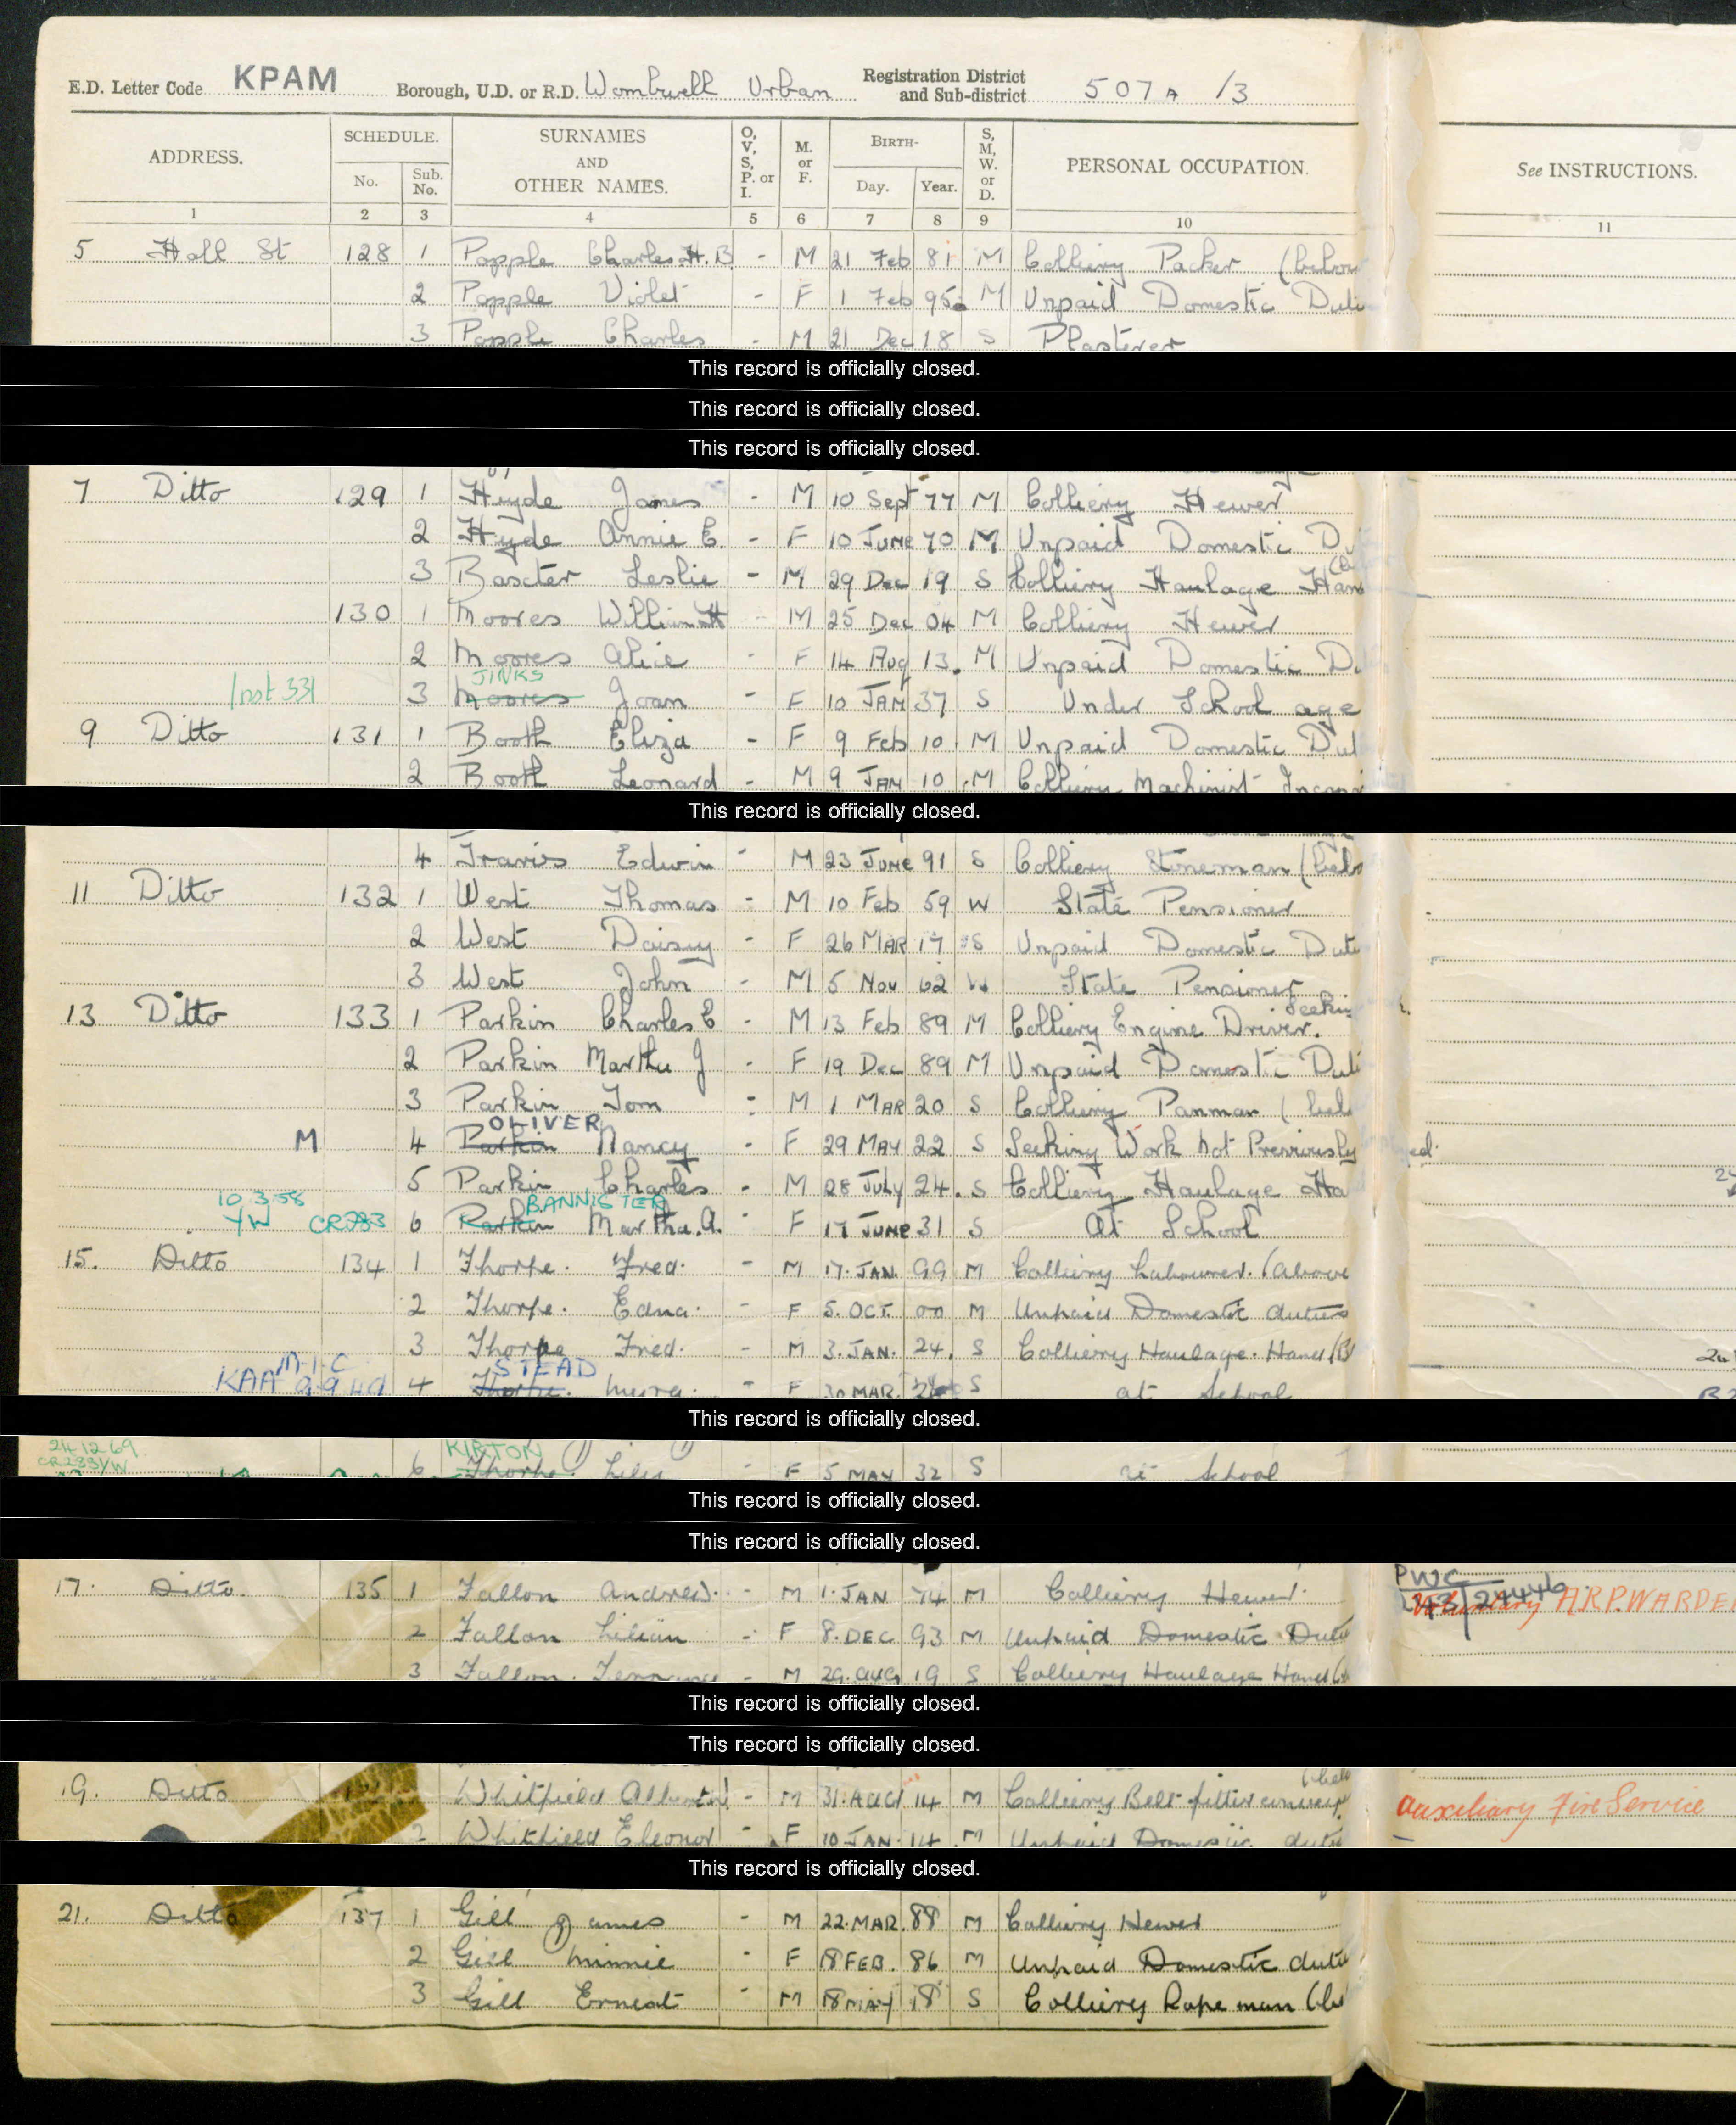 E.D. Letter Code KPAM Borough, U.D. or R.D. Wombwell Urban Registration District and Sub-district 507A /3
ADDRESS. SCHEDULE. No. Sub. No. SURNAMES AND OTHER NAMES. O, V, S, P. or I. M. or F. BIRTH- Day. Year. S, M, W. or D. PERSONAL OCCUPATION. See INSTRUCTIONS.
1 2 3 4 5 6 7 8 9 10 11
5 Hall St 128 1 Popple Charles H. B - M 21 Feb 81 M Colliery Packer (below
2 Popple Violet - F 1 Feb 95 M Unpaid Domestic Duti
3 Popple Charles - M 21 Dec 18 S Plasterer
This record is officially closed.
This record is officially closed.
This record is officially closed.
7 Ditto 129 1 Hyde James - M 10 Sept 77 M Colliery Hewer
2 Hyde Annie E. - F 10 June 70 M Unpaid Domestic D
3 Baxter Leslie - M 29 Dec 19 S Colliery Haulage Han
130 1 Moores William H - M 25 Dec 04 M Colliery Hewer
2 Moores Alice - F 14 Aug 13. M Unpaid Domestic Du
JINKS
3 Moores Joan - F 10 JAN 37 S Under School age
9 Ditto 131 1 Booth Eliza - F 9 Feb 10 M Unpaid Domestic Dut
2 Booth Leonard - M 9 JAN 10 M Colliery Machinist
This record is officially closed.
4 Travis Edwin - M 23 June 91 S Colliery Stoneman (belo
11 Ditto 132 1 West Thomas - M 10 Feb 59 W State Pensioner
2 West Daisy - F 26 MAR 17 S Unpaid Domestic Duti
3 West John - M 5 Nov 62 W State Pensioner
13 Ditto 133 1 Parkin Charles E - M 13 Feb 89 M Colliery Engine Driver. Seekin
2 Parkin Martha J - F 19 Dec 89 M Unpaid Domestic Duti
3 Parkin Tom - M 1 MAR 20 S Colliery Panman (belo
OLIVER
M 4 Parkin Nancy - F 29 MAY 22 S Seeking Work Not Previously ed.
5 Parkin Charles - M 28 July 24. S Colliery Haulage Ha
10.3.58 BANNISTER
YW CR283 6 Parkin Martha. A. - F 17 June 31 S At School
15. Ditto 134 1 Thorpe. Fred. - M 17. JAN. 99 M Colliery Labourer. (above
2 Thorpe. Edna. - F 5. OCT. 00 M Unpaid Domestic duties
3 Thorpe Fred. - M 3. JAN. 24. S Colliery Haulage. Hand (B
STEAD
KAA 9 9 49 4 Thorpe. Myra. - F 30 MAR. S at School
This record is officially closed.
24 12 69 KIRTON
CR283/YW 6 Thorpe. Lily - F 5 MAY 32 S at School
This record is officially closed.
This record is officially closed.
17. Ditto. 135 1 Fallon Andrew. - M 1. JAN 74 M Colliery Hewer. PWC Voluntary A.R.P. WARDE
2 Fallon Lilian - F 8. DEC 93 M Unpaid Domestic Duti
3 Fallon. Terrance - M 29. AUG 19 S Colliery Haulage Hand
This record is officially closed.
This record is officially closed.
19. Ditto Whitfield Albert - M 31. AUG 14 M Colliery Belt fitter Auxiliary Fire Service
2 Whitfield Eleonor - F 10 JAN. 14 M Unpaid Domestic duti
This record is officially closed.
21. Ditto 137 1 Gill James - M 22. MAR. 88 M Colliery Hewer
2 Gill Minnie - F 18 FEB. 86 M Unpaid Domestic duti
3 Gill Ernest - M 18 MAY 18 S Colliery Rope man (be